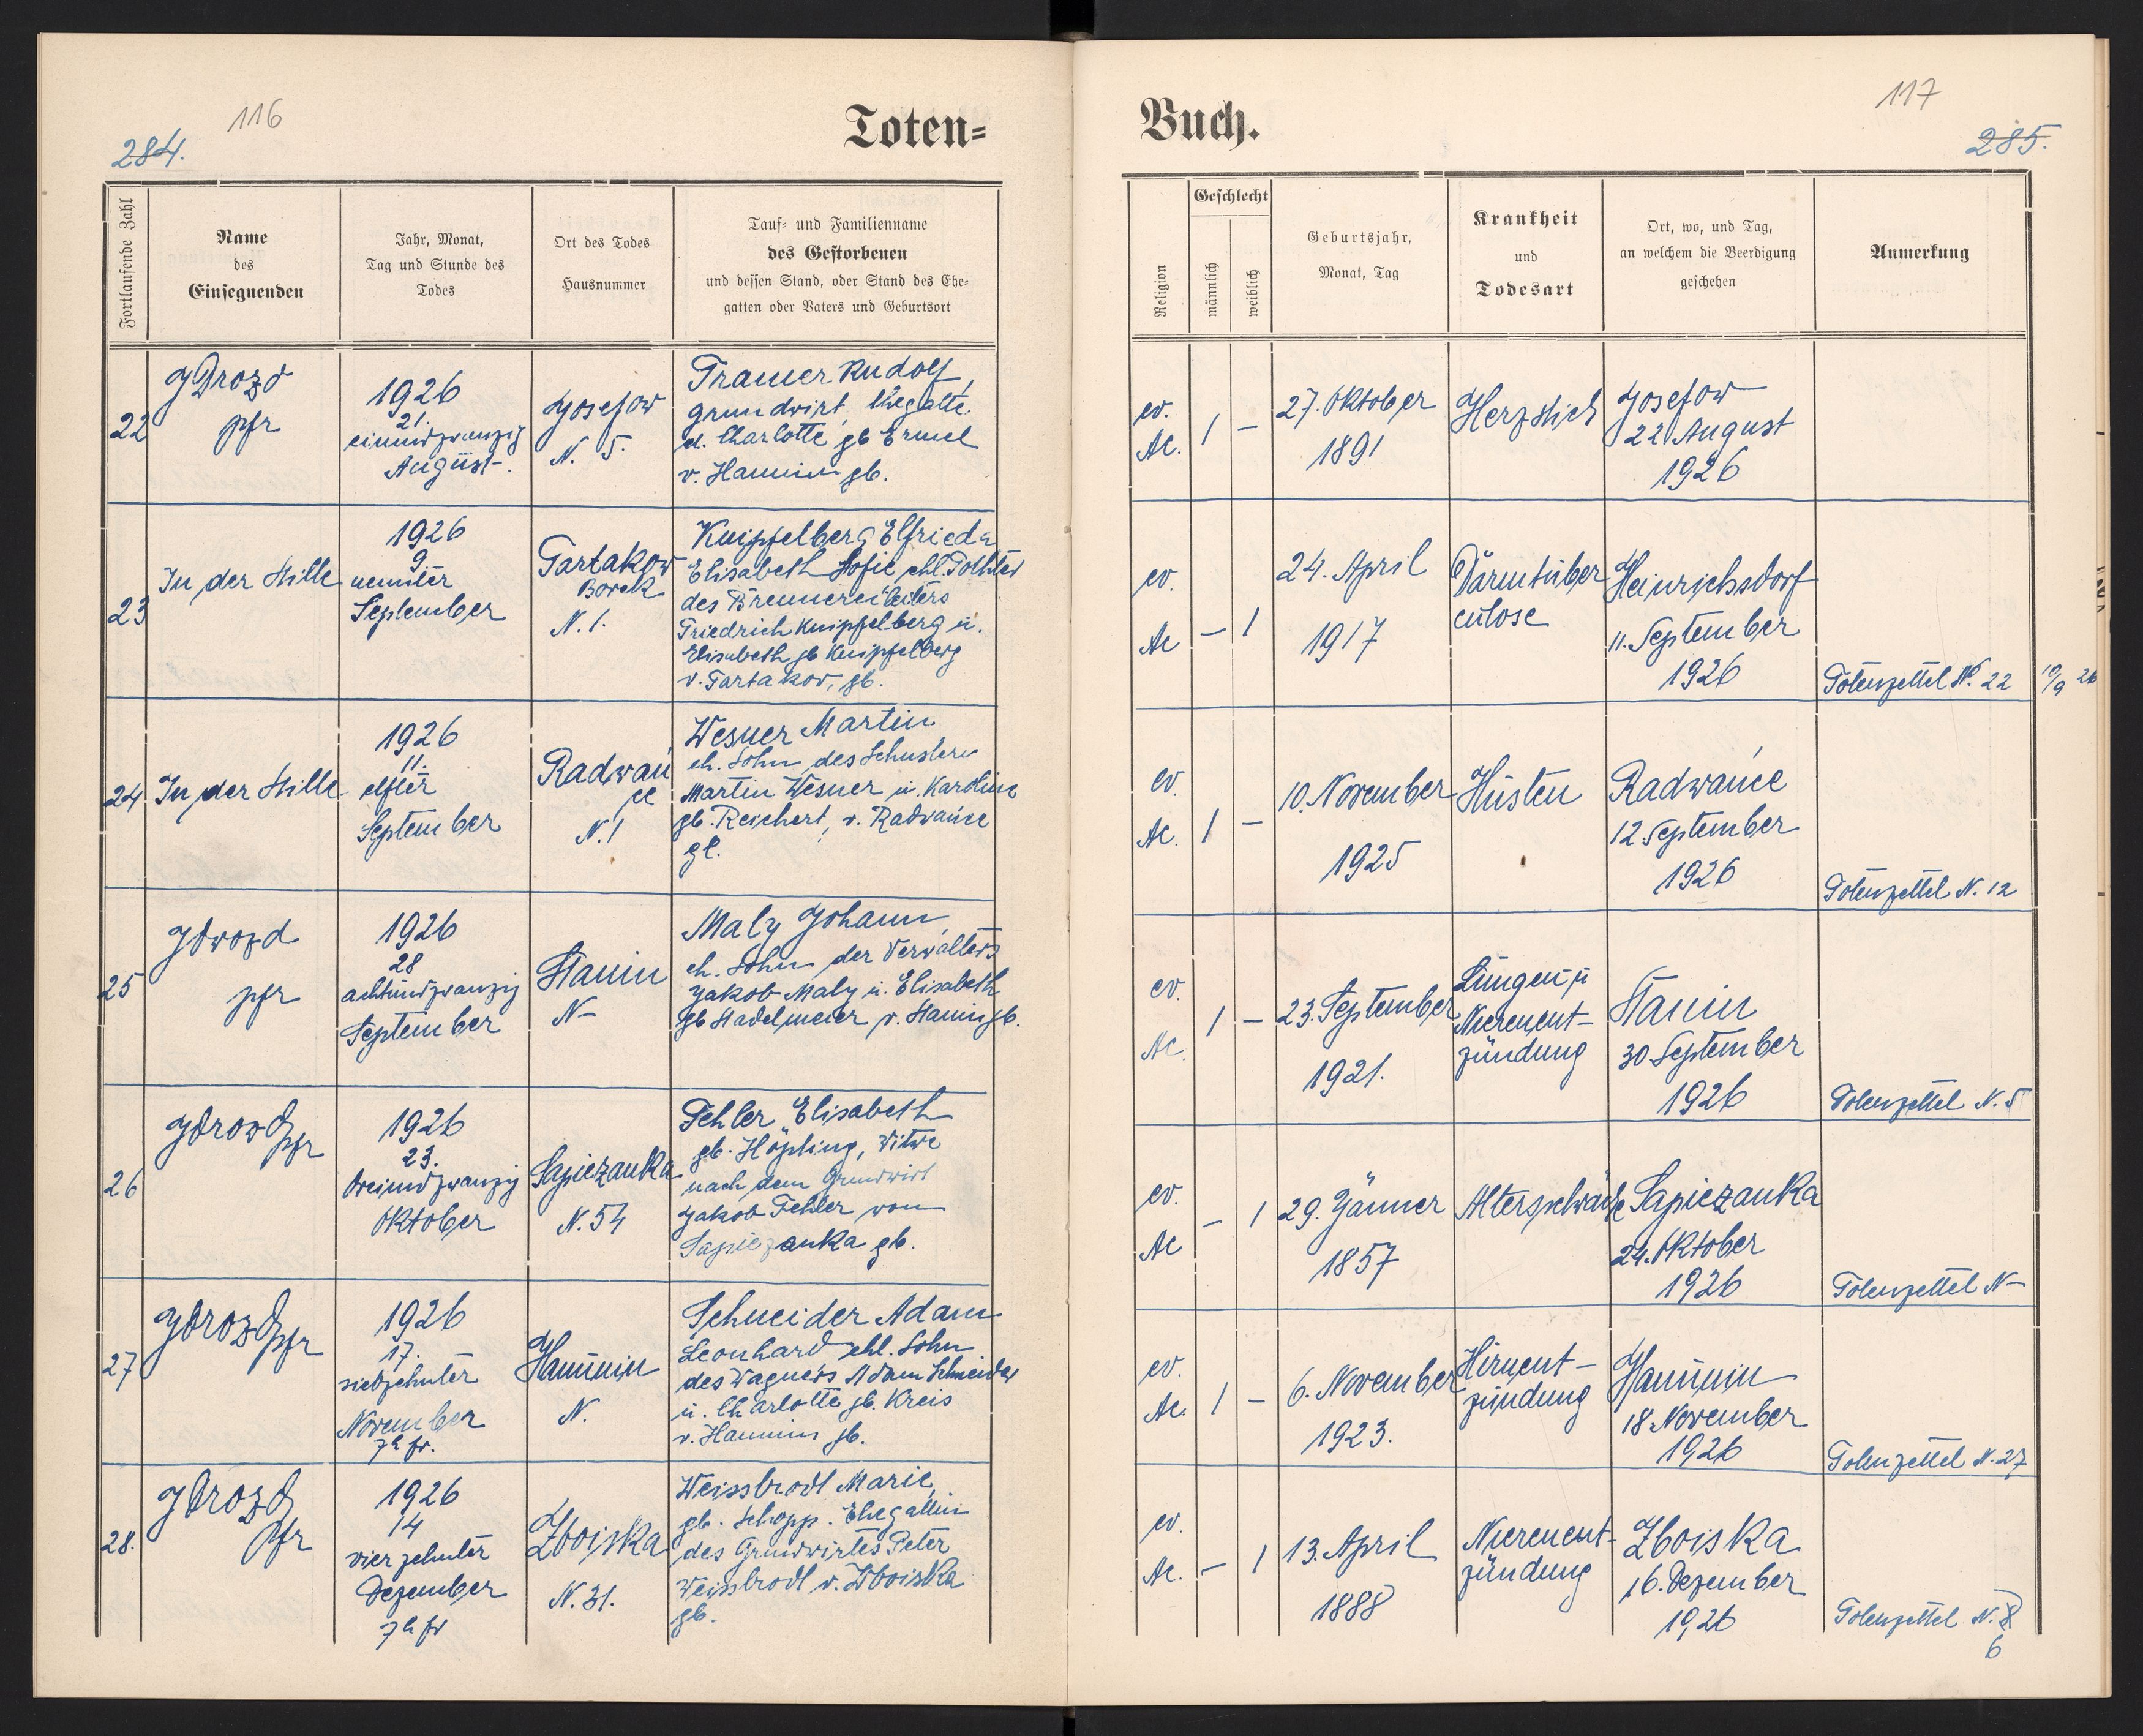 116
284.
Toten=
Fortlaufende Zahl
Name
des
Einsegnenden
Jahr, Monat,
Tag und Stunde des
Todes
Ort des Todes
Hausnummer
Tauf= und Familienname
des Gestorbenen
und dessen Stand, oder Stand des Ehe=
gatten oder Vaters und Geburtsort
22
JDrozd
pfr
1926
21.
einundzwanzig
August.
Josefow
N. 5.
Tramer Rudolf,
Grundwirt, Ehegatte
d. Charlotte gb Ermel
v. Hanunin gb.
23
In der Stille
1926
9
neunter
September
Tartakow
Borek
N. 1.
Knipfelberg Elfrieda
Elisabeth Sofie ehl. Tochter
des Brennereileiters
Friedrich Knipfelberg u.
Elisabeth gb Knipfelberg
v. Tartakov, gb.
24
In der Stille
1926
11.
elfter
September
Radwań
ce
N. 1
Wesner Martin
eh. Sohn des Schusters
Martin Wesner u. Karoline
gb. Reichert, v. Radwańce
gb.
25
JDrozd
pfr
1926
28
achtundzwanzig
September
Stanin
N-
Maly Johann,
eh. Sohn der Verwalters
Jakob Maly u. Elisabeth
gb Stadelmeier v. Stanin gb.
26
JDrozd pfr
1926
23.
dreiundzwanzig
Oktober
Sapiezanka
N. 54
Fehler Elisabeth
gb. Höpling, Witwe
nach dem Grundwirt
Jakob Fehler von
Sapiezanka gb.
27
JDrozd pfr
1926
17.
siebzehnter
November
7h fr.
Hanunin
N.
Schneider Adam
Leonhard ehl. Sohn
des Wagners Adam Schneider
u. Charlotte gb. Kreis
v. Hanunin gb.
28.
JDrozd
Pfr
1926
14
vierzehnter
Dezember
7h fr
Zboiska
N. 31.
Weissbrodt Marie,
gb. Schopp. Ehegattin
des Grundwirtes Peter
Weissbrodt v. Zboiska
gb.
117
285.
Buch.
Religion
Geschlecht
männlich
weiblich
Geburtsjahr,
Monat, Tag
Krankheit
und
Todesart
Ort, wo, und Tag,
an welchem die Beerdigung
geschehen
Anmerkung
ev.
Ac.
1
-
27. Oktober
1891
Herzstich
Josefow
22 August
1926
ev.
Ac
-
1
24. April
1917
Darmtuber
culose
Heinrichsdorf
11. September
1926
Totenzettel No. 22
10/9 26
ev.
Ac.
1
-
10. November
1925
Husten
Radwańce
12. September
1926
Totenzettel N. 12
ev.
Ac.
1
-
23. September
1921.
Lungen u
Nierenent-
zündung
Stanin
30 September
1926
Totenzettel N. 5
ev.
Ac
-
1
29. Jänner
1857
Altersschwäche
Sapiezanka
24. Oktober
1926
Totenzettel N-
ev.
Ac.
1
-
6. November
1923.
Hirnent-
zündung
Hanunin
18 November
1926
Totenzettel N. 27
ev.
Ac.
-
1
13. April
1888
Nierenent-
zündung
Zboiska
16. Dezember
1926
Totenzettel N. 8
6